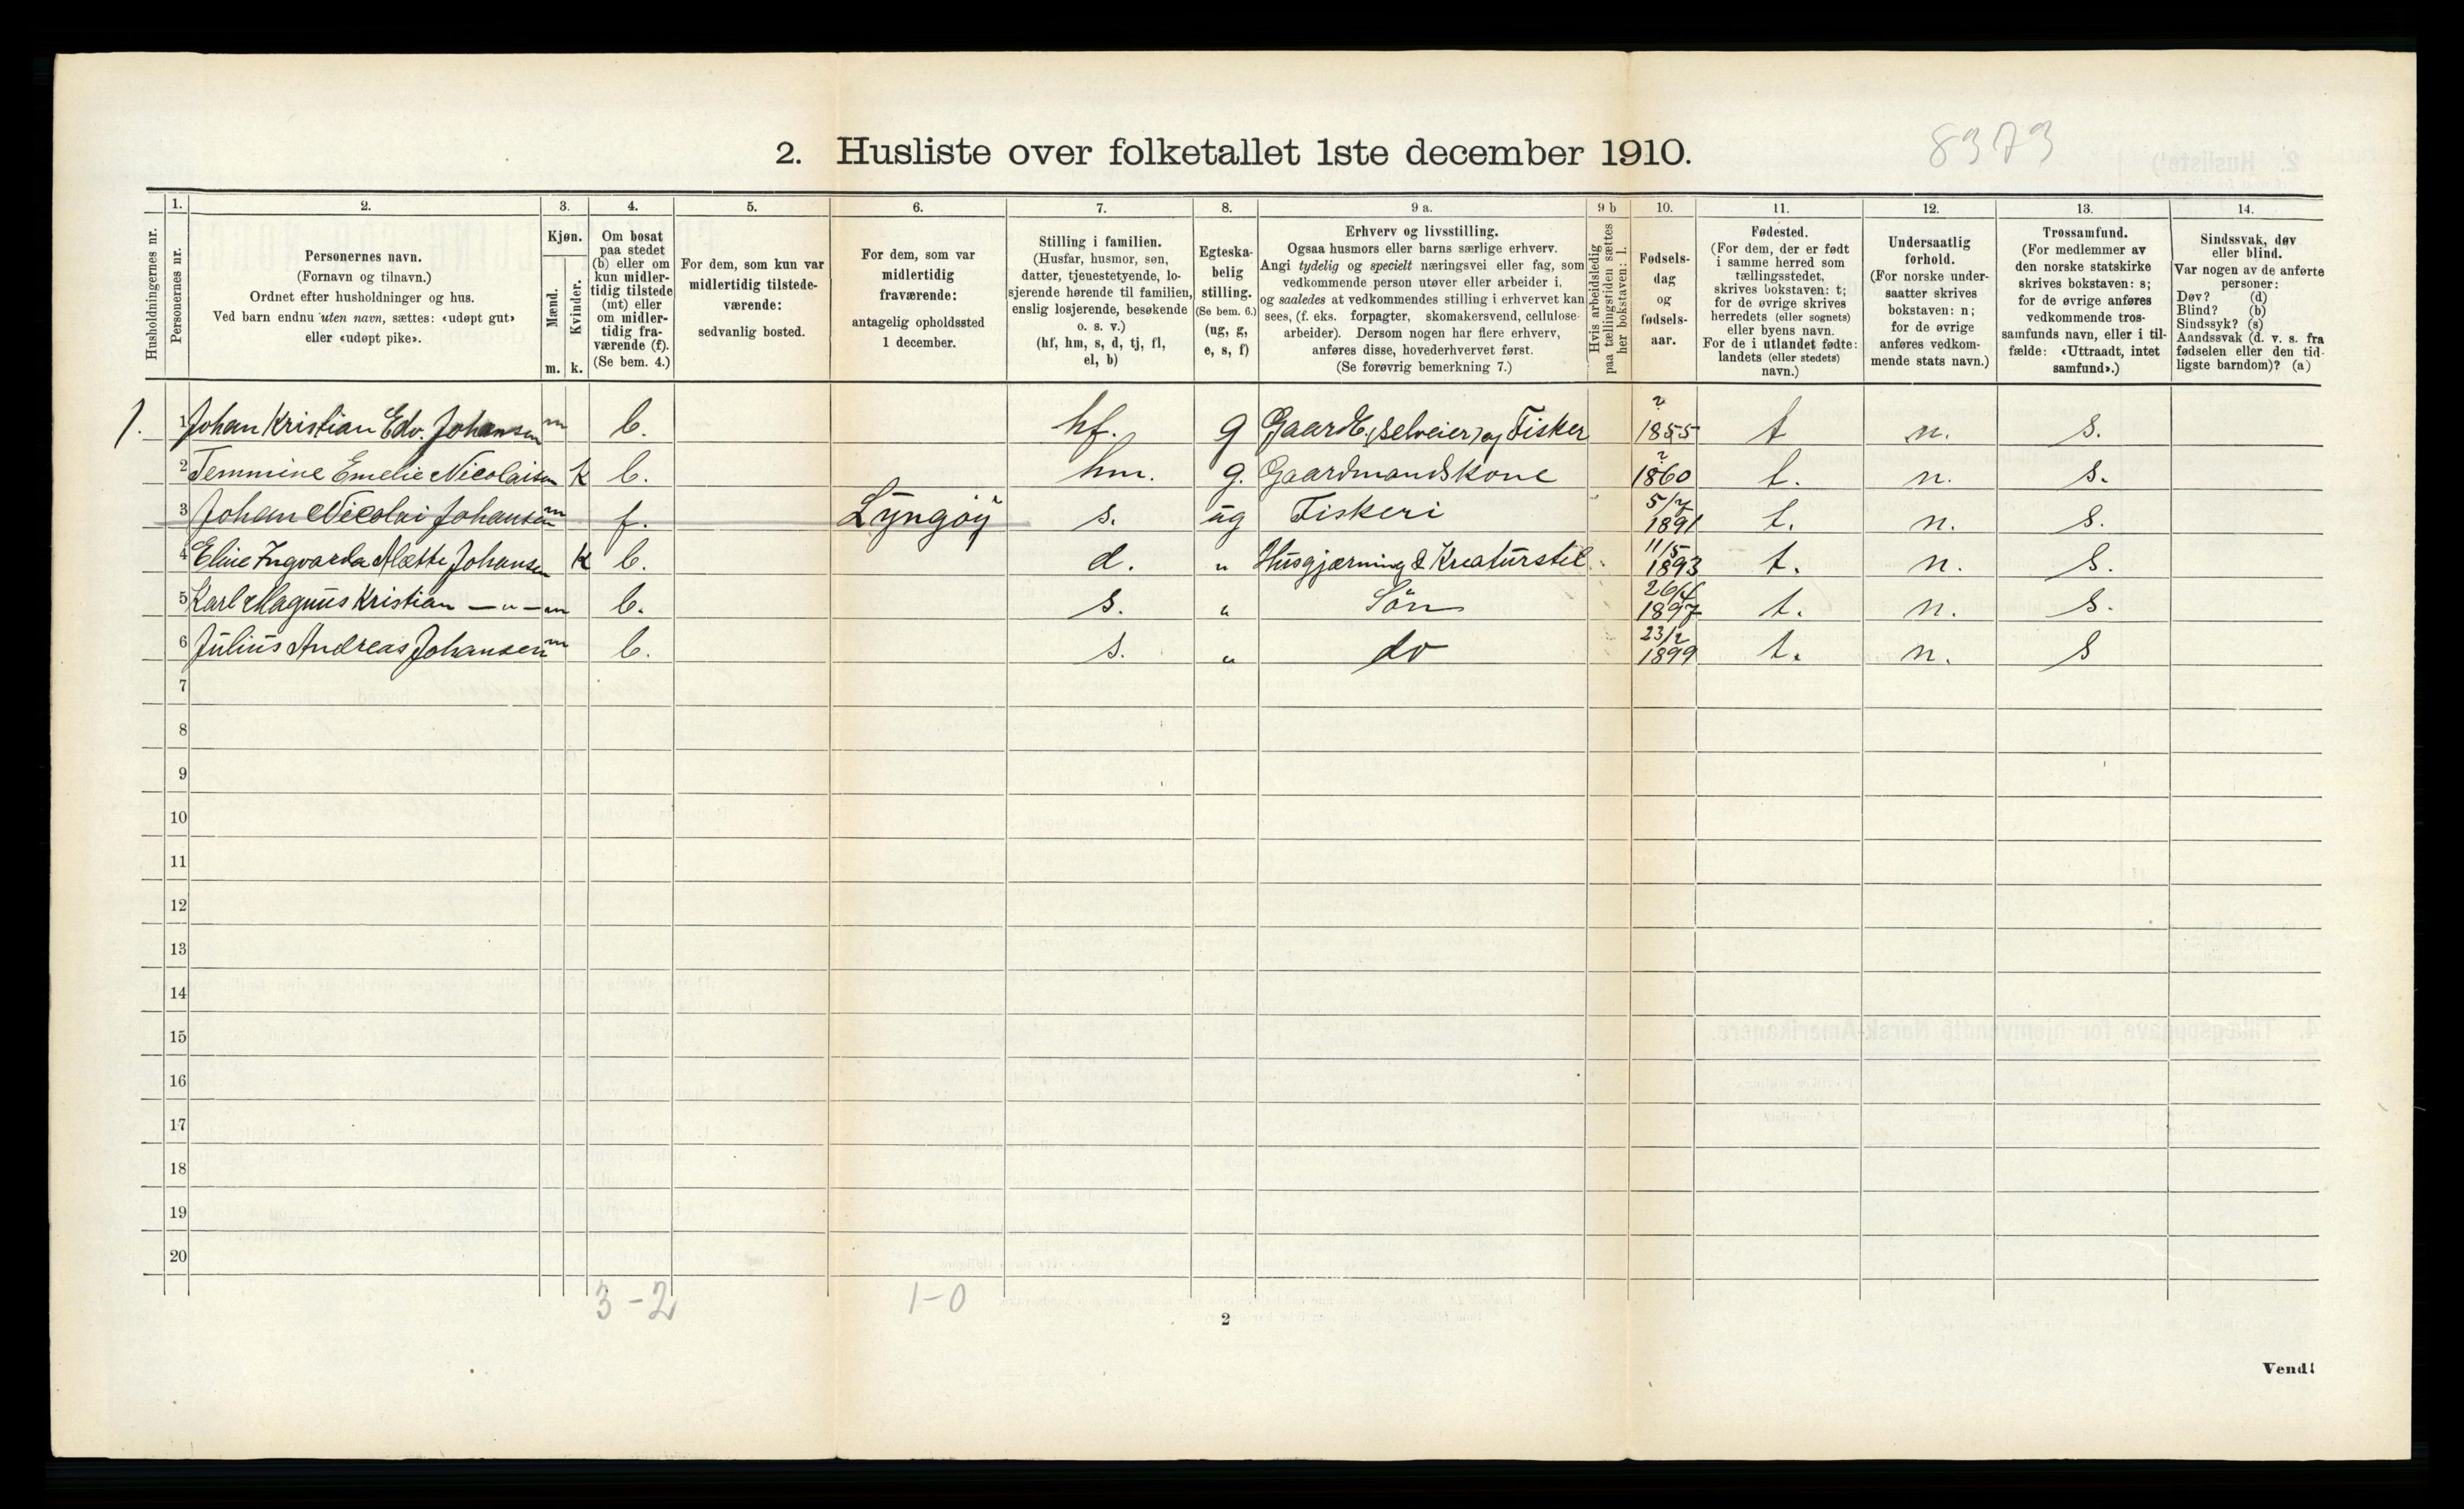 8373
2. Husliste over folketallet 1ste december 1910.
Husholdningernes nr.
1.
Personernes nr.
2.
Personernes navn.
(Fornavn og tilnavn.)
Ordnet efter husholdninger og hus.
Ved barn endnu uten navn, sættes: «udøpt gut»
eller «udøpt pike».
3.
Kjøn.
Mænd.
Kvinder.
m. k.
4.
Om bosat
paa stedet
(b) eller om
kun midler-
tidig tilstede
(mt) eller
om midler-
tidig fra-
værende (f).
(Se bem. 4.)
5.
For dem, som kun var
midlertidig tilstede-
værende:
sedvanlig bosted.
6.
For dem, som var
midlertidig
fraværende:
antagelig opholdssted
1 december.
7.
Stilling i familien.
(Husfar, husmor, søn,
datter, tjenestetyende, lo-
sjerende hørende til familien,
enslig losjerende, besøkende
o. s. v.)
(hf, hm, s, d, tj, fl,
el, b)
8.
Egteska-
belig
stilling.
(Se bem. 6.)
(ug, g,
e, s, f)
9 a.
Erhverv og livsstilling.
Ogsaa husmors eller barns særlige erhverv.
Angi tydelig og specielt næringsvei eller fag, som
vedkommende person utøver eller arbeider i,
og saaledes at vedkommendes stilling i erhvervet kan
sees, (f. eks. forpagter, skomakersvend, cellulose-
arbeider). Dersom nogen har flere erhverv,
anføres disse, hovederhvervet først.
(Se forøvrig bemerkning 7.)
9 b
Hvis arbeidsledig
paa tællingstiden sættes
her bokstaven: l.
10.
Fødsels-
dag
og
fødsels-
aar.
11.
Fødested.
(For dem, der er født
i samme herred som
tællingsstedet,
skrives bokstaven: t;
for de øvrige skrives
herredets (eller sognets)
eller byens navn.
For de i utlandet fødte:
landets (eller stedets)
navn.)
12.
Undersaatlig
forhold.
(For norske under-
saatter skrives
bokstaven: n;
for de øvrige
anføres vedkom-
mende stats navn.)
13.
Trossamfund.
(For medlemmer av
den norske statskirke
skrives bokstaven: s;
for de øvrige anføres
vedkommende tros-
samfunds navn, eller i til-
fælde: «Uttraadt, intet
samfund».)
14.
Sindssvak, døv
eller blind.
Var nogen av de anførte
personer:
Døv? (d)
Blind? (b)
Sindssyk? (s)
Aandssvak (d. v. s. fra
fødselen eller den tid-
ligste barndom)? (a)
1. 1 Johan Kristian Edv. Johansen m b. hf. g Gaardb. (selveier) og Fisker ? 1855 t n. s.
2 Temmine Emelie Nicolaisen k b. hm. g. Gaardmandskone ? 1860 t. n. s.
3 Johan Nicolai Johansen m f. Lyngöy s. ug Fiskeri 5/7 1891 t. n. s.
4 Eline Ingvarda Mætte Johansen k b. d. " Husgjærning & Kreaturstel 11/5 1893 t. n. s.
5 Karl Magnus Kristian — " — m b. s. " Sön 1897 t. n. s.
6 Julius Andreas Johansen m b. s. " do 23/2 1899 t. n. s
7
8
9
10
11
12
13
14
15
16
17
18
19
20
3-2 1-0
2
Vend!